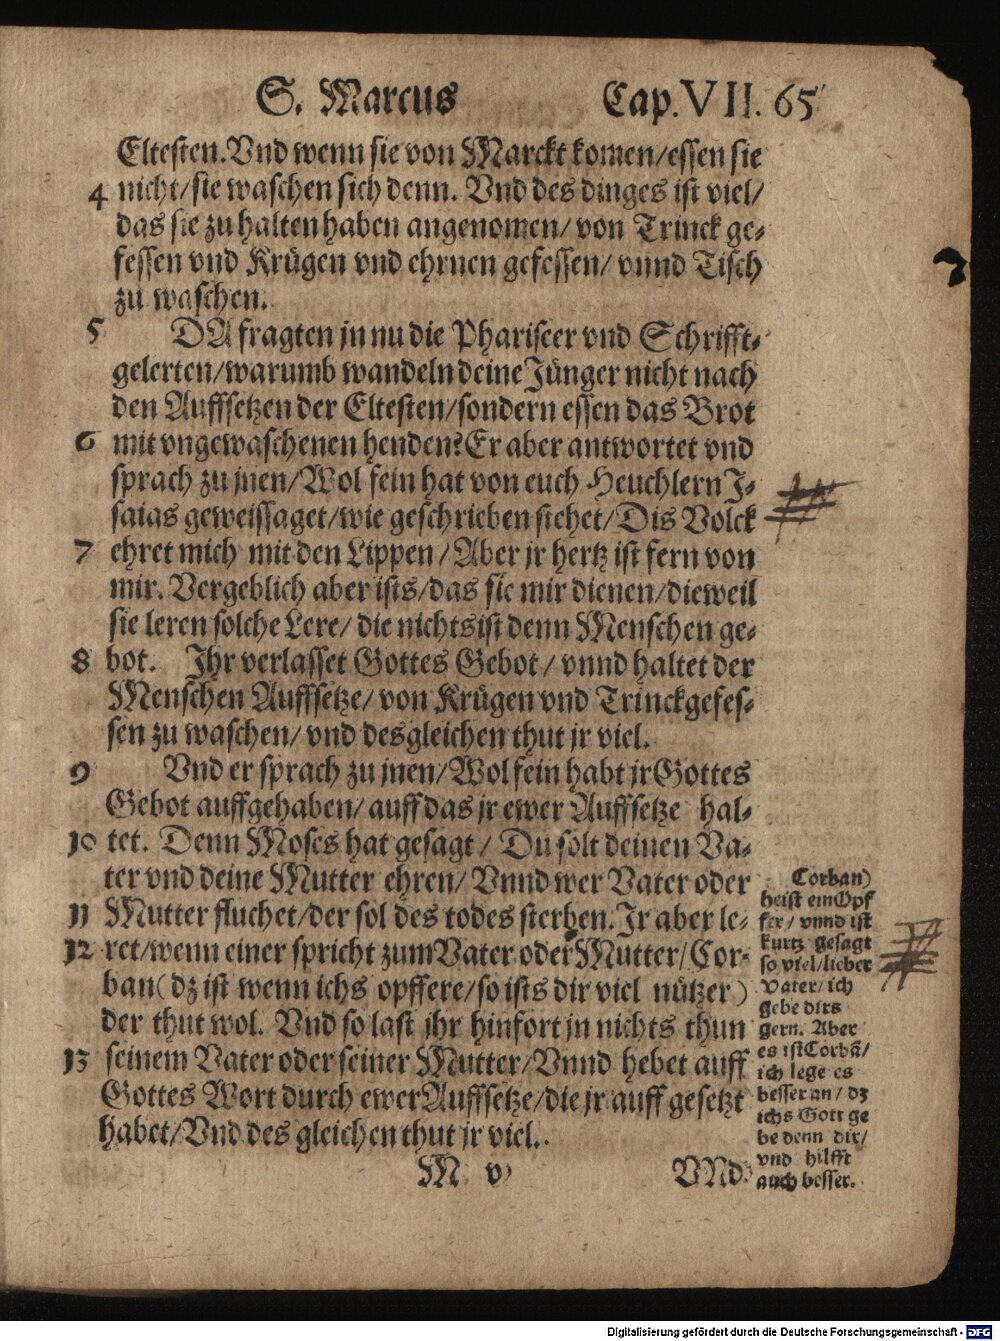 S. Marcus Cap. VII. 65
Eltesten. Vnd wenn sie von Marckt komen/essen sie
4 nicht/sie waschen sich denn. Vnd des dinges ist viel/
das sie zu halten haben angenomen/ von Trinck ge-
fessen vnd Krügen vnd ehrnen gefessen/ vnnd Tisch
zu waschen.
5 DA fragten jn nu die Phariseer vnd Schrifft-
gelerten/warumb wandeln deine Jünger nicht nach
den Auffsetzen der Eltesten/sondern essen das Brot
6 mit vngewaschenen henden? Er aber antwortet vnd
sprach zu jnen/Wol fein hat von euch Heuchlern J-
saias geweissaget/wie geschrieben stehet/Dis Volck
7 ehret mich mit den Lippen/Aber jr hertz ist fern von
mir. Vergeblich aber ists/das sie mir dienen/dieweil
sie leren solche Lere/ die nichts ist denn Menschen ge-
8 bot. Jhr verlasset Gottes Gebot/ vnnd haltet der
Menschen Auffsetze/ von Krügen vnd Trinckgefes-
sen zu waschen/ vnd desgleichen thut jr viel.
9 Vnd er sprach zu jnen/Wol fein habt jr Gottes
Gebot auffgehaben/ auff das jr ewer Auffsetze hal-
10 tet. Denn Moses hat gesagt/ Du solt deinen Va-
ter vnd deine Mutter ehren/ Vnnd wer Vater oder
11 Mutter fluchet/der sol des todes sterben. Jr aber le-
12 ret/wenn einer spricht zum Vater oder Mutter/Cor-
ban (dz ist wenn ichs opffere/so ists dir viel nützer)
der thut wol. Vnd so last jhr hinfort jn nichts thun
13 seinem Vater oder seiner Mutter/Vnnd hebet auff
Gottes Wort durch ewer Auffsetze/die jr auff gesetzt
habet/Vnd des gleichen thut jr viel.
Corban)
heist ein Opf
fer/ vnnd ist
kurtz gesagt
so viel/lieber
Vater/ ich
gebe dirs
gern. Aber
es ist Corbã/
ich lege es
besser an/ dz
ichs Gott ge
be denn dir/
vnd hilfft
auch besser.
M v VNd
Digitalisierung gefördert durch die Deutsche Forschungsgemeinschaft - DFG